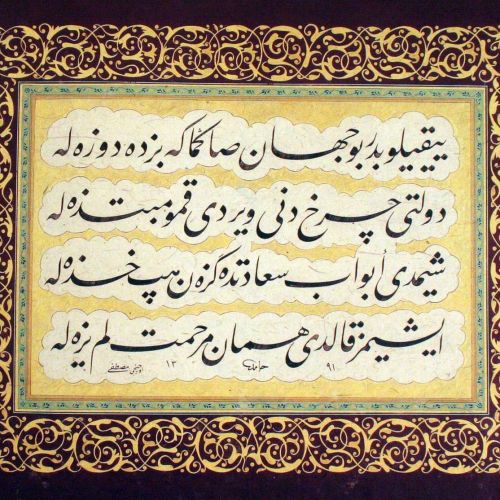 ییقیلوبدر بو جهان صانما که بزده دوزه له
دولتی چرخ دنی ویردی قمو مبتذله
شیمدی أبواب سعادتده گزن هپ خذله
ایشیمز قالدی همان مرحمت لم یزله
٩١ حامد ١٣ مصطفی